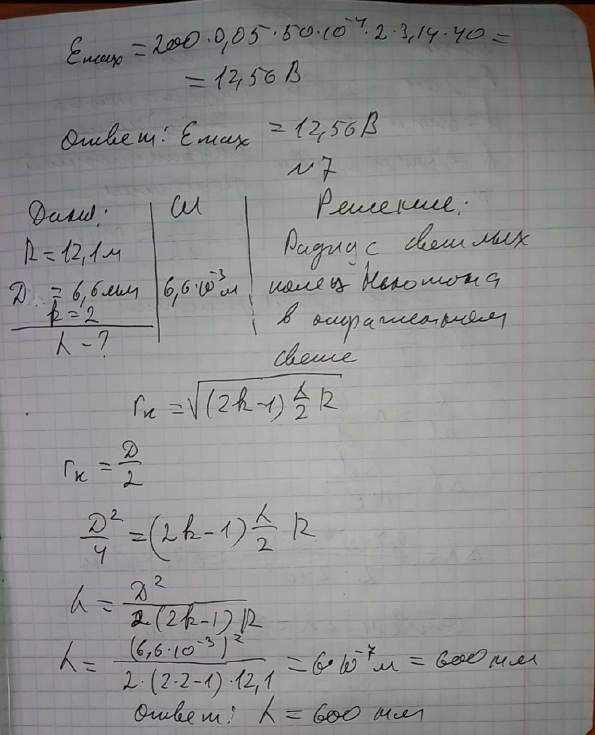 Emax = 200·0,05·50·10⁻⁴·2·3,14·40 =
= 12,56 В
Ответ: Emax = 12,56 В
№7
Дано:
R = 12,1 м
D = 6,6 мм
k = 2
λ - ?
СИ
6,6·10⁻³ м
Решение:
Радиус светлых
колец Ньютона
в отраженном
свете
rₖ = √((2k-1) λ/2 R)
rₖ = D/2
D²/4 = (2k-1) λ/2 R
λ = D²/(2·(2k-1) R)
λ = (6,6·10⁻³)²/(2·(2·2-1)·12,1) = 6·10⁻⁷ м = 600 нм
Ответ: λ = 600 нм